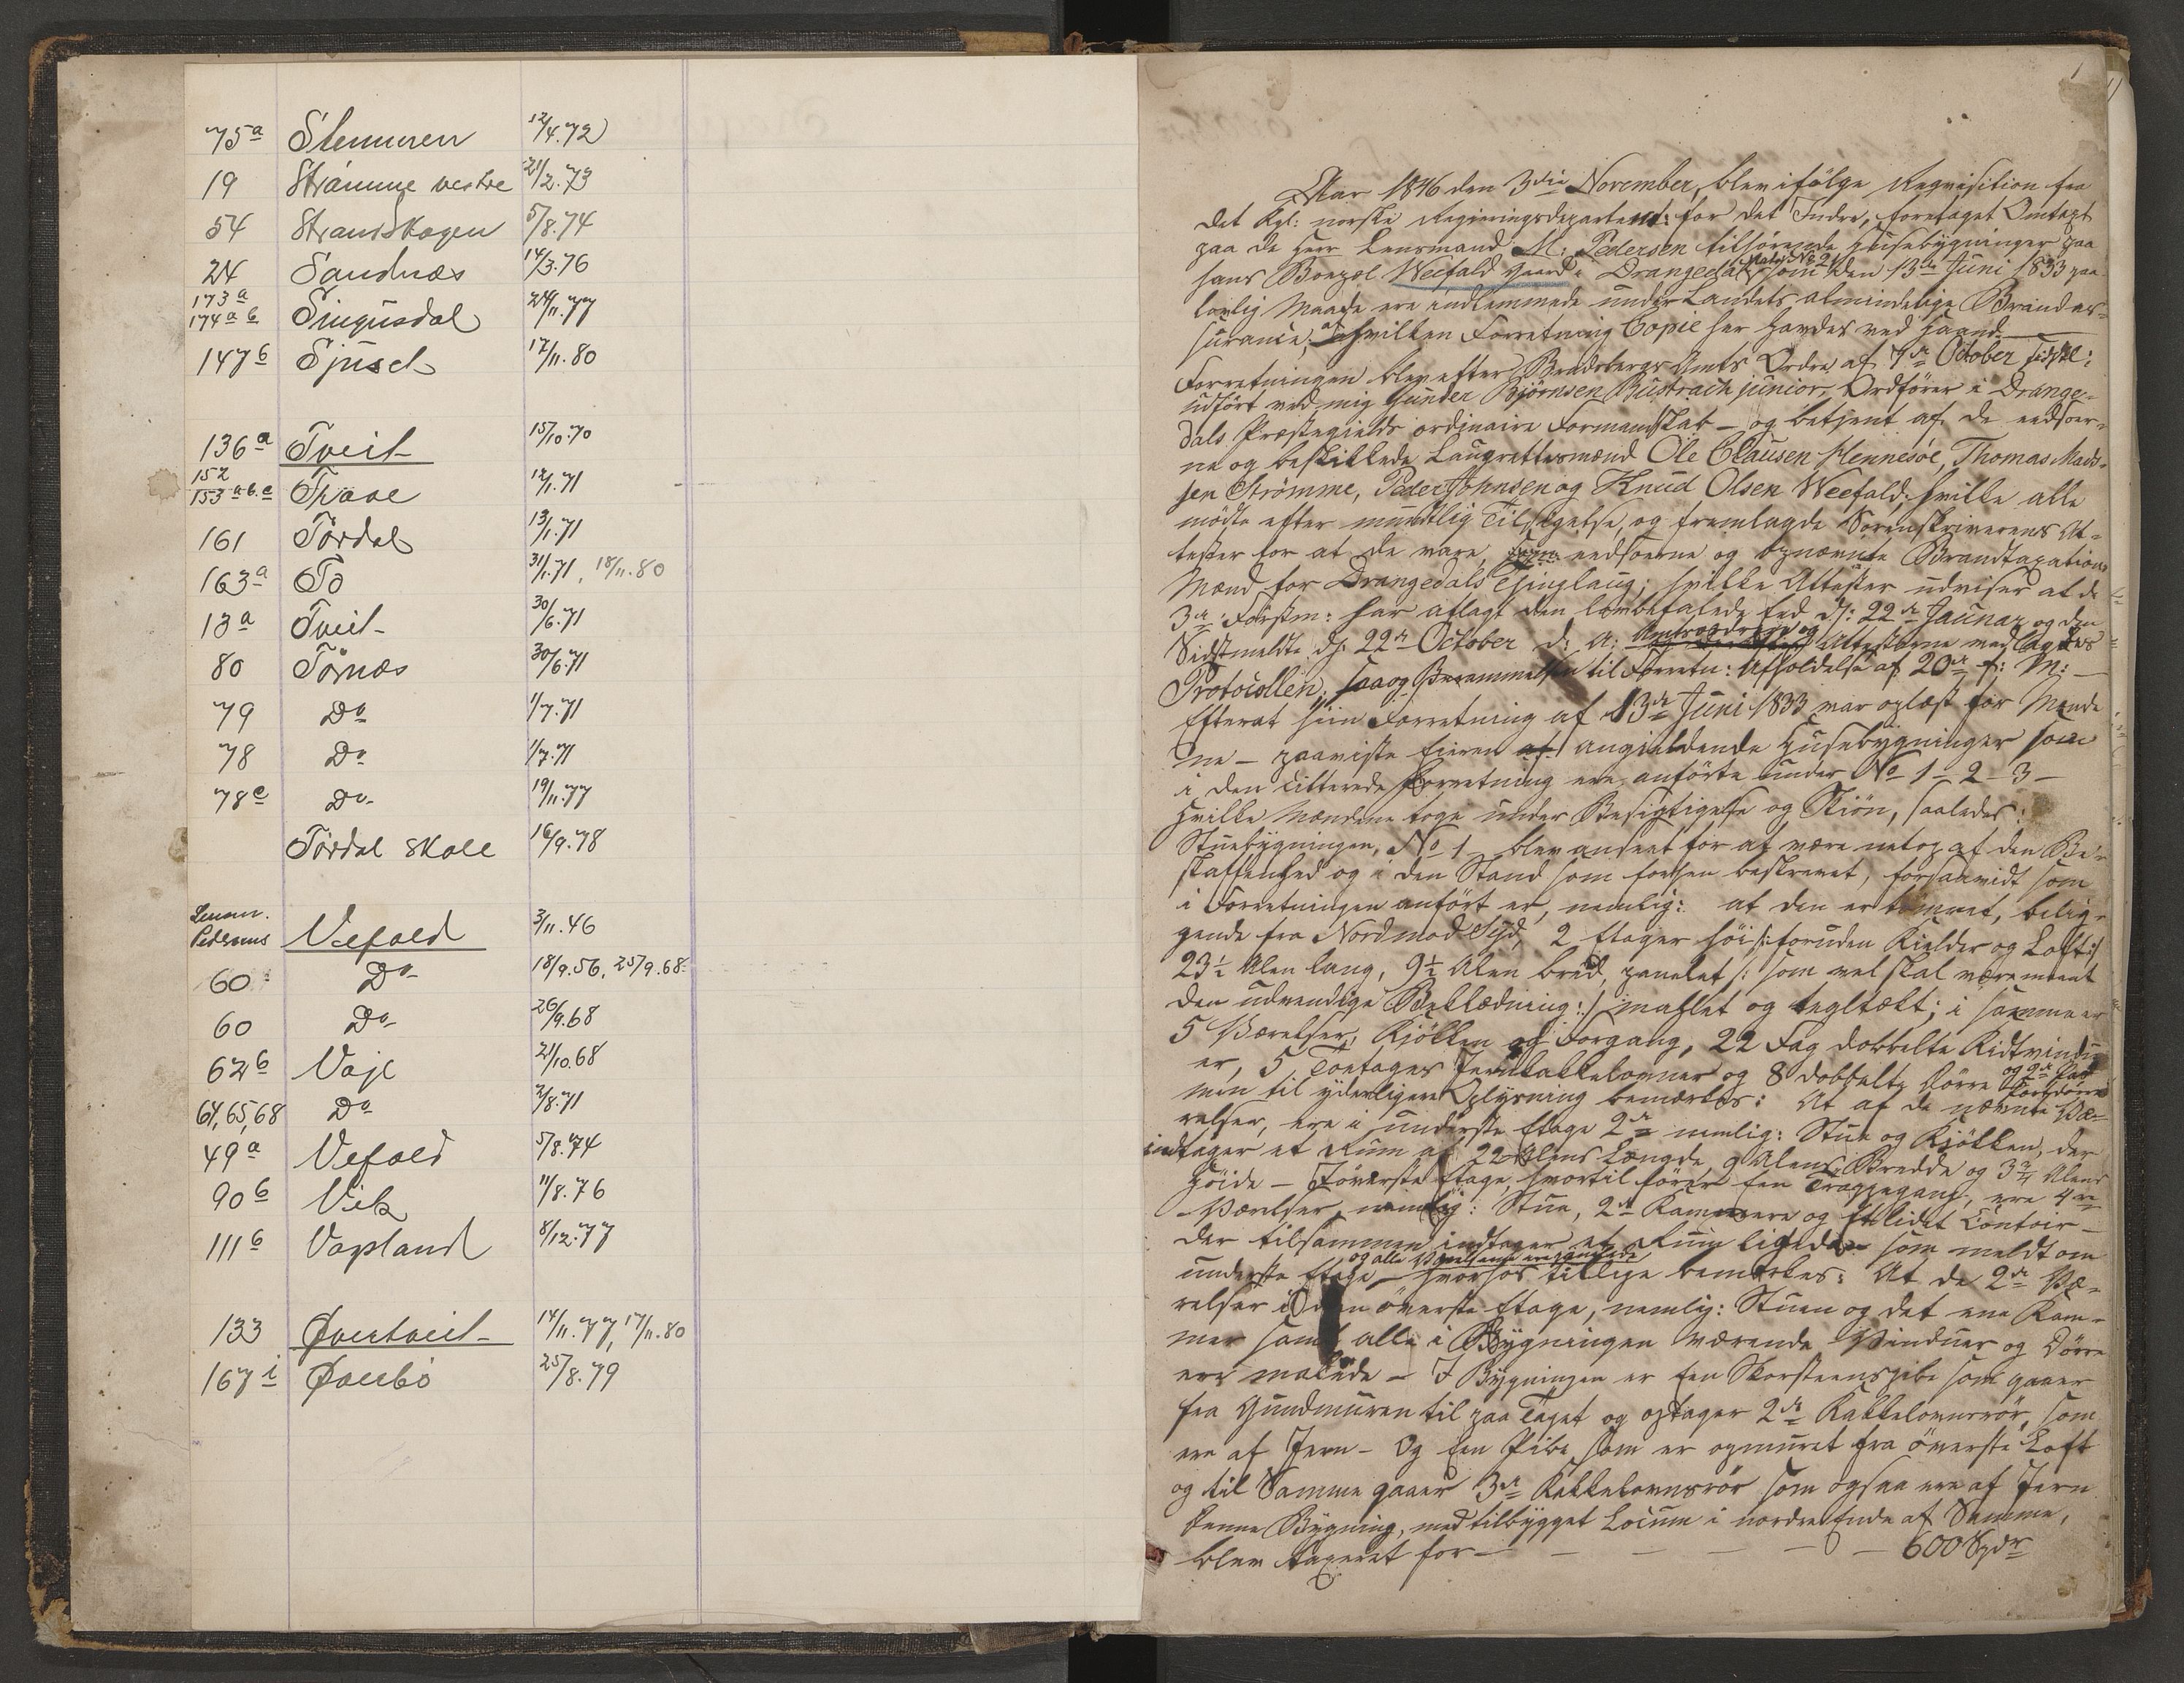 75a Stenmuren 12/4.72
19 Strømme vestre 21/2.73
54 Strandskogen 5/8.74
24 Sandnæs 14/3.76
173a
174a b Singusdal 24/11.77
147b Sjusel 17/11.80
136a Tveit 15/10.70
152
153a.b.c Traae 12/1.71
161 Tørdal 13/1.71
163a To 31/1.71, 18/11.80
13a Tveit 30/6.71
80 Törnæs 30/6.71
79 Do 1/7.71
78 Do 1/7.71
78e Do 19/11.77
Tördal skole 16/9.78
Lensm.
Pedersens Vefald 3/11.46
60 Do 18/9.56, 25/9.68
60 Do 26/9.68
62b Voje 21/10.68
64, 65, 68 Do 2/8.71
49a Vefald 5/8.74
90b Vik 11/8.76
111b Vapland 8/12.77
133 Øvertveit 14/11.77, 17/11.80
167i Øverbö 25/8.79
1
Aar 1846 den 3die November, blev ifölge Reqvisition fra
det Kgl: norske Regjeringsdepartemt: for det Indre, foretaget Omtaxt
paa de Herr Lensmand M: Pedersen tilhörende Huusebygninger paa
hans Boepæl Weefald Gaard i Drangedal Matr: No 21 som den 13de Juni 1833 paa
lovlig Maade ere indlemmede under Landets almindelige Brandas-
surance; af hvilken Forretning Copie her havdes ved Haand.
Forretningen blev efter Bradsbergs Amts Ordre af 7de October
udfört ved mig Gunder Björnsen Bustrach junior, Ordförer i Drange-
dals Præstegields ordinaire Formandskab - og betjent af de eedsvor-
ne og beskikkede Laugrettesmænd Ole Clausen Hennesöe, Thomas Mads-
sen Strömme, Peder Johnsen og Knud Olsen Weefald; hvilke alle
mödte efter mundtlig Tilsigelse, og fremlagde Sorenskriverens At-
tester for at de vare eedsvorne og opnævnte Brandtaxations
Mænd for Drangedals Thinglaug; hvilke Attester udviser at de
3de Förstn: har aflagt den lovbefalede Eed d: 22de Januar og den
Sidstmeldte d: 22de October d: A: Amtsordren og Attesterne vedlagdes
Protocollen, saa og Berammelsen til Forretn: Afholdelse af 20de f: M: -
Efterat hiin Forretning af 13de Juni 1833 var oplæst for Mænde
ne - paaviste Eieren angieldende Huusebygninger som
i den citterede Forretning ere anförte under No 1 - 2 - 3 -
hvilke Mændene toge under Besigtigelse og Skiön, saaledes:
Stuebygningen, No 1 - blev anseet for at være netop af den Be-
skaffenhed og i den Stand som forhen beskrevet, forsaavidt som
i Forretningen anfört er, nemlig: at den er tömret, belig-
gende fra Nord mod Syd, 2 Etager höi /: foruden Kielder og Loft :/
23½ Alen lang, 9½ Alen bred, panelet /: som vel skal være meent
den udvendige Beklædning :/ mahlet og tegltækt; i samme er
5 Værelser, Kjökken og Forgang, 22 Fag dobbelte Kidtvindu-
er, 5 Toetages Jernkakkelovner og 8 dobbelte Dörre og 2de
men til yderligere Oplysning bemærkes: At af de nævnte Væ-
relser, ere i underste Etage 2de nemlig: Stue og Kjökken, der
indtager et Rum af 22 Alens Længde, 9 Alens Bredde og 3¾ Alens
Höide - I överste Etage, hvortil förer een Trappegang, ere 4re
Værelser, nemlig: Stue, 2de Kammere og et lidet Contoir -
der tilsammen indtager et Rum ligedan som meldt om
underste Etage - og alle Værelserne ere hvorhos tillige bemærkes: At de 2de Væ-
relser i den överste Etage, nemlig: Stuen og det ene Kam-
mer samt alle i Bygningen værende Vinduer og Dörre
ere malede - I Bygningen er een Skorsteenspibe som gaaer
fra Grundmuren til paa Taget og optager 2de Kakkelovnsrör, som
ere af Jern - Og een Pibe som er opmuret fra överste Loft
og til Samme gaaer 3de Kakkelovnsrör som ogsaa ere af Jern
Denne Bygning, med tilbygget Locum i nordre Ende af Samme,
blev taxeret for - - - - - 600 Spdr